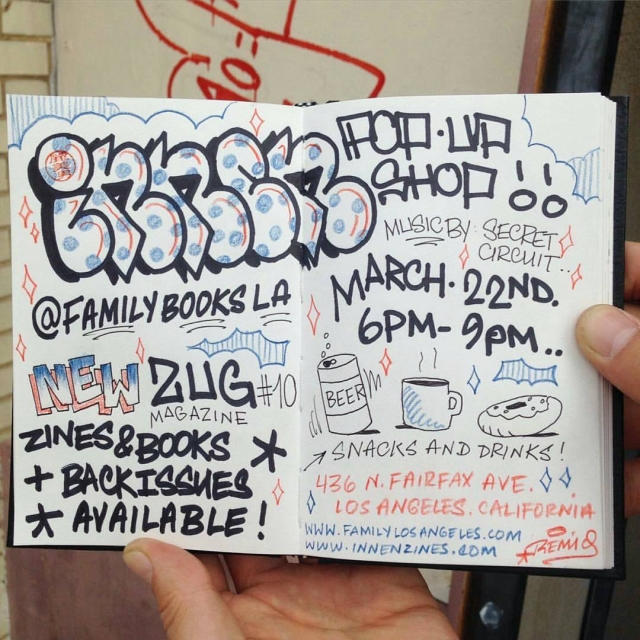 INNEN
@FAMILY BOOKS LA
NEW ZUG #10
MAGAZINE
ZINES & BOOKS
+ BACKISSUES *
* AVAILABLE!
POP·UP
SHOP!!
MUSIC BY: SECRET
CIRCUIT..
MARCH·22ND.
6PM-9PM..
BEER
SNACKS AND DRINKS!
436 N. FAIRFAX AVE.
LOS ANGELES. CALIFORNIA
WWW.FAMILYLOSANGELES.COM
WWW.INNENZINES.COM
REMIO